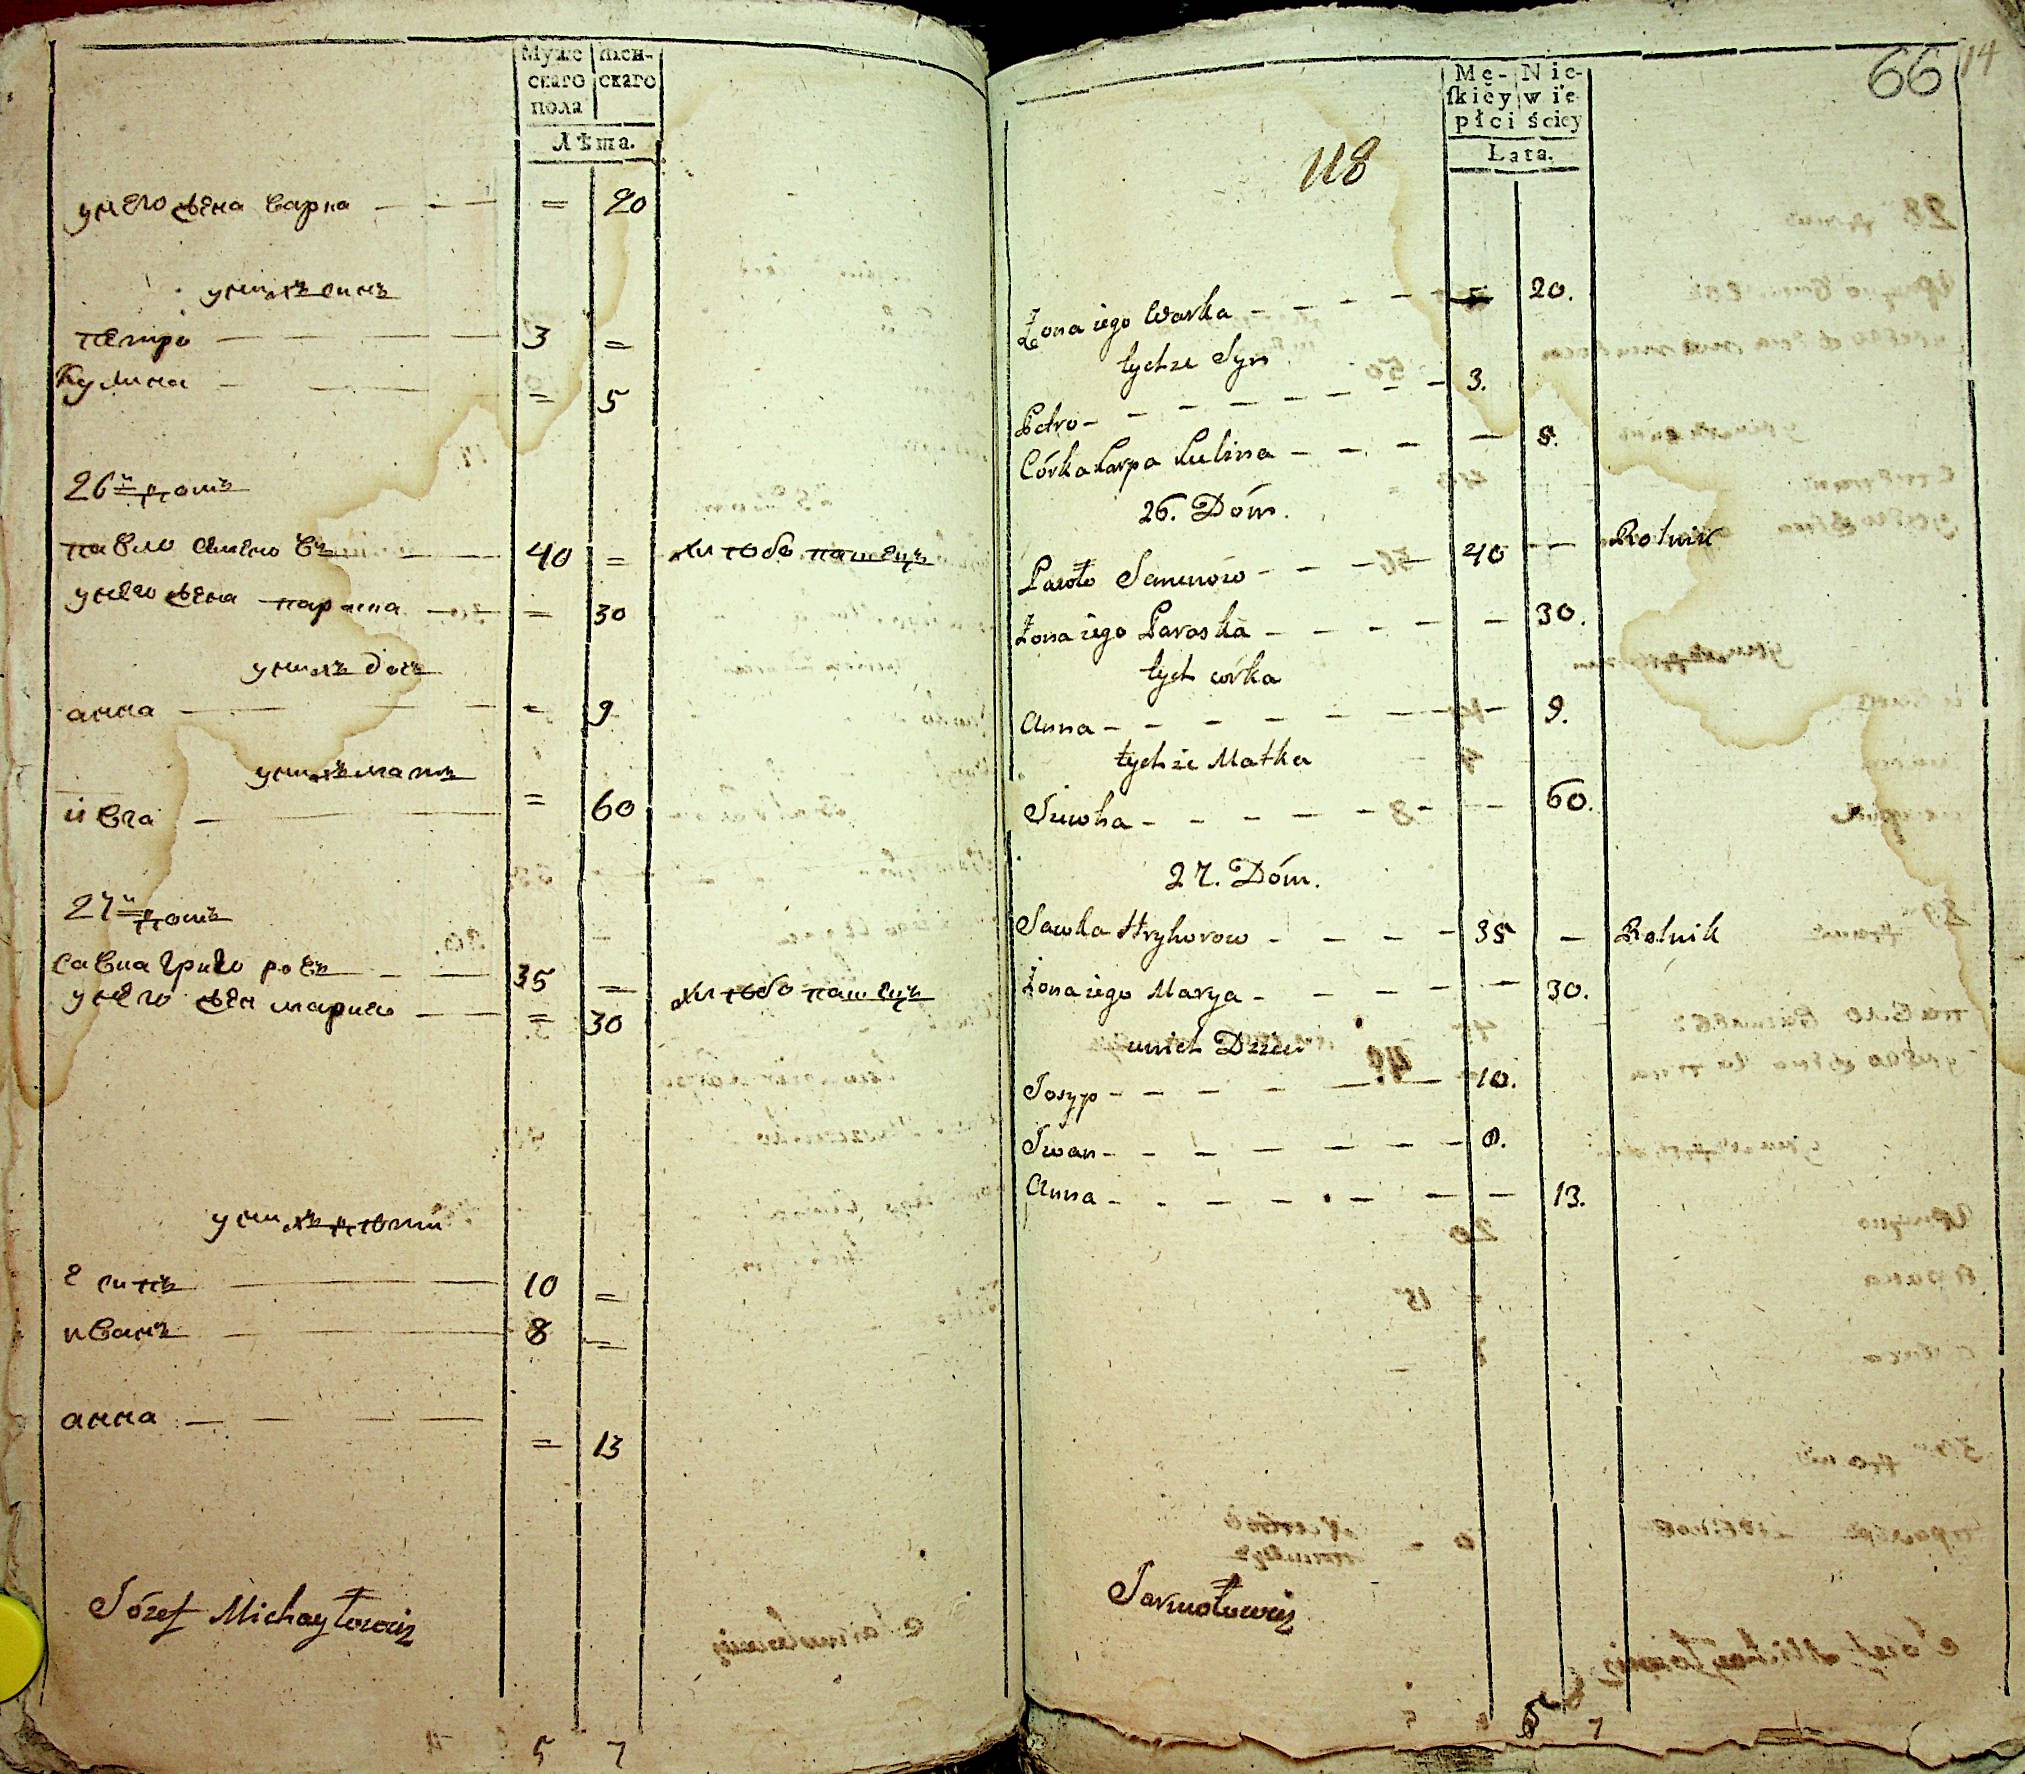 Муже
скаго
пола
жен-
скаго
Лѣта.
унего жена варка — — — = 20
унихъ синъ
петро — — — 3 =
Кулина — — = 5
26й домъ
павло семеновъ — — 40 = хлѣбо пашецъ
унего жена параска — — = 30
унихъ дочь
анна — — — = 9
унихъ мать
ивга — — = 60
27й домъ
савка григоровъ — — 35 = хлѣбо пашецъ
унего жен марию — — = 30
унихъ дѣти
есипъ — — 10 =
иванъ — — 8 =
анна — — — — = 13
Józef Michayłowicz
5 7
66 14
118
Mę-
ſkiey
płci
Nie-
wie
ściey
Lata.
Żona iego Warka — — — — — 20.
tychże Syn
Petro — — — — — — — 3.
Córka Karpa Kulina — — — — 5.
26. Dóm.
Pawło Semenow — — — — 40 — — Rolnik
Żona iego Paraska — — — — — 30.
tych córka
Anna — — — — — — — 9.
tychże Matka
Jiwha — — — — — — — 60.
27. Dóm.
Sawka Hryhorow — — — — 35 — Rolnik
Żona iego Marya — — — — — 30.
unich Dzieci
Josyp — — — — — — 10.
Iwan — — — — — — — 8.
Anna — — — — — — — 13.
Jarmołowicz
5 7